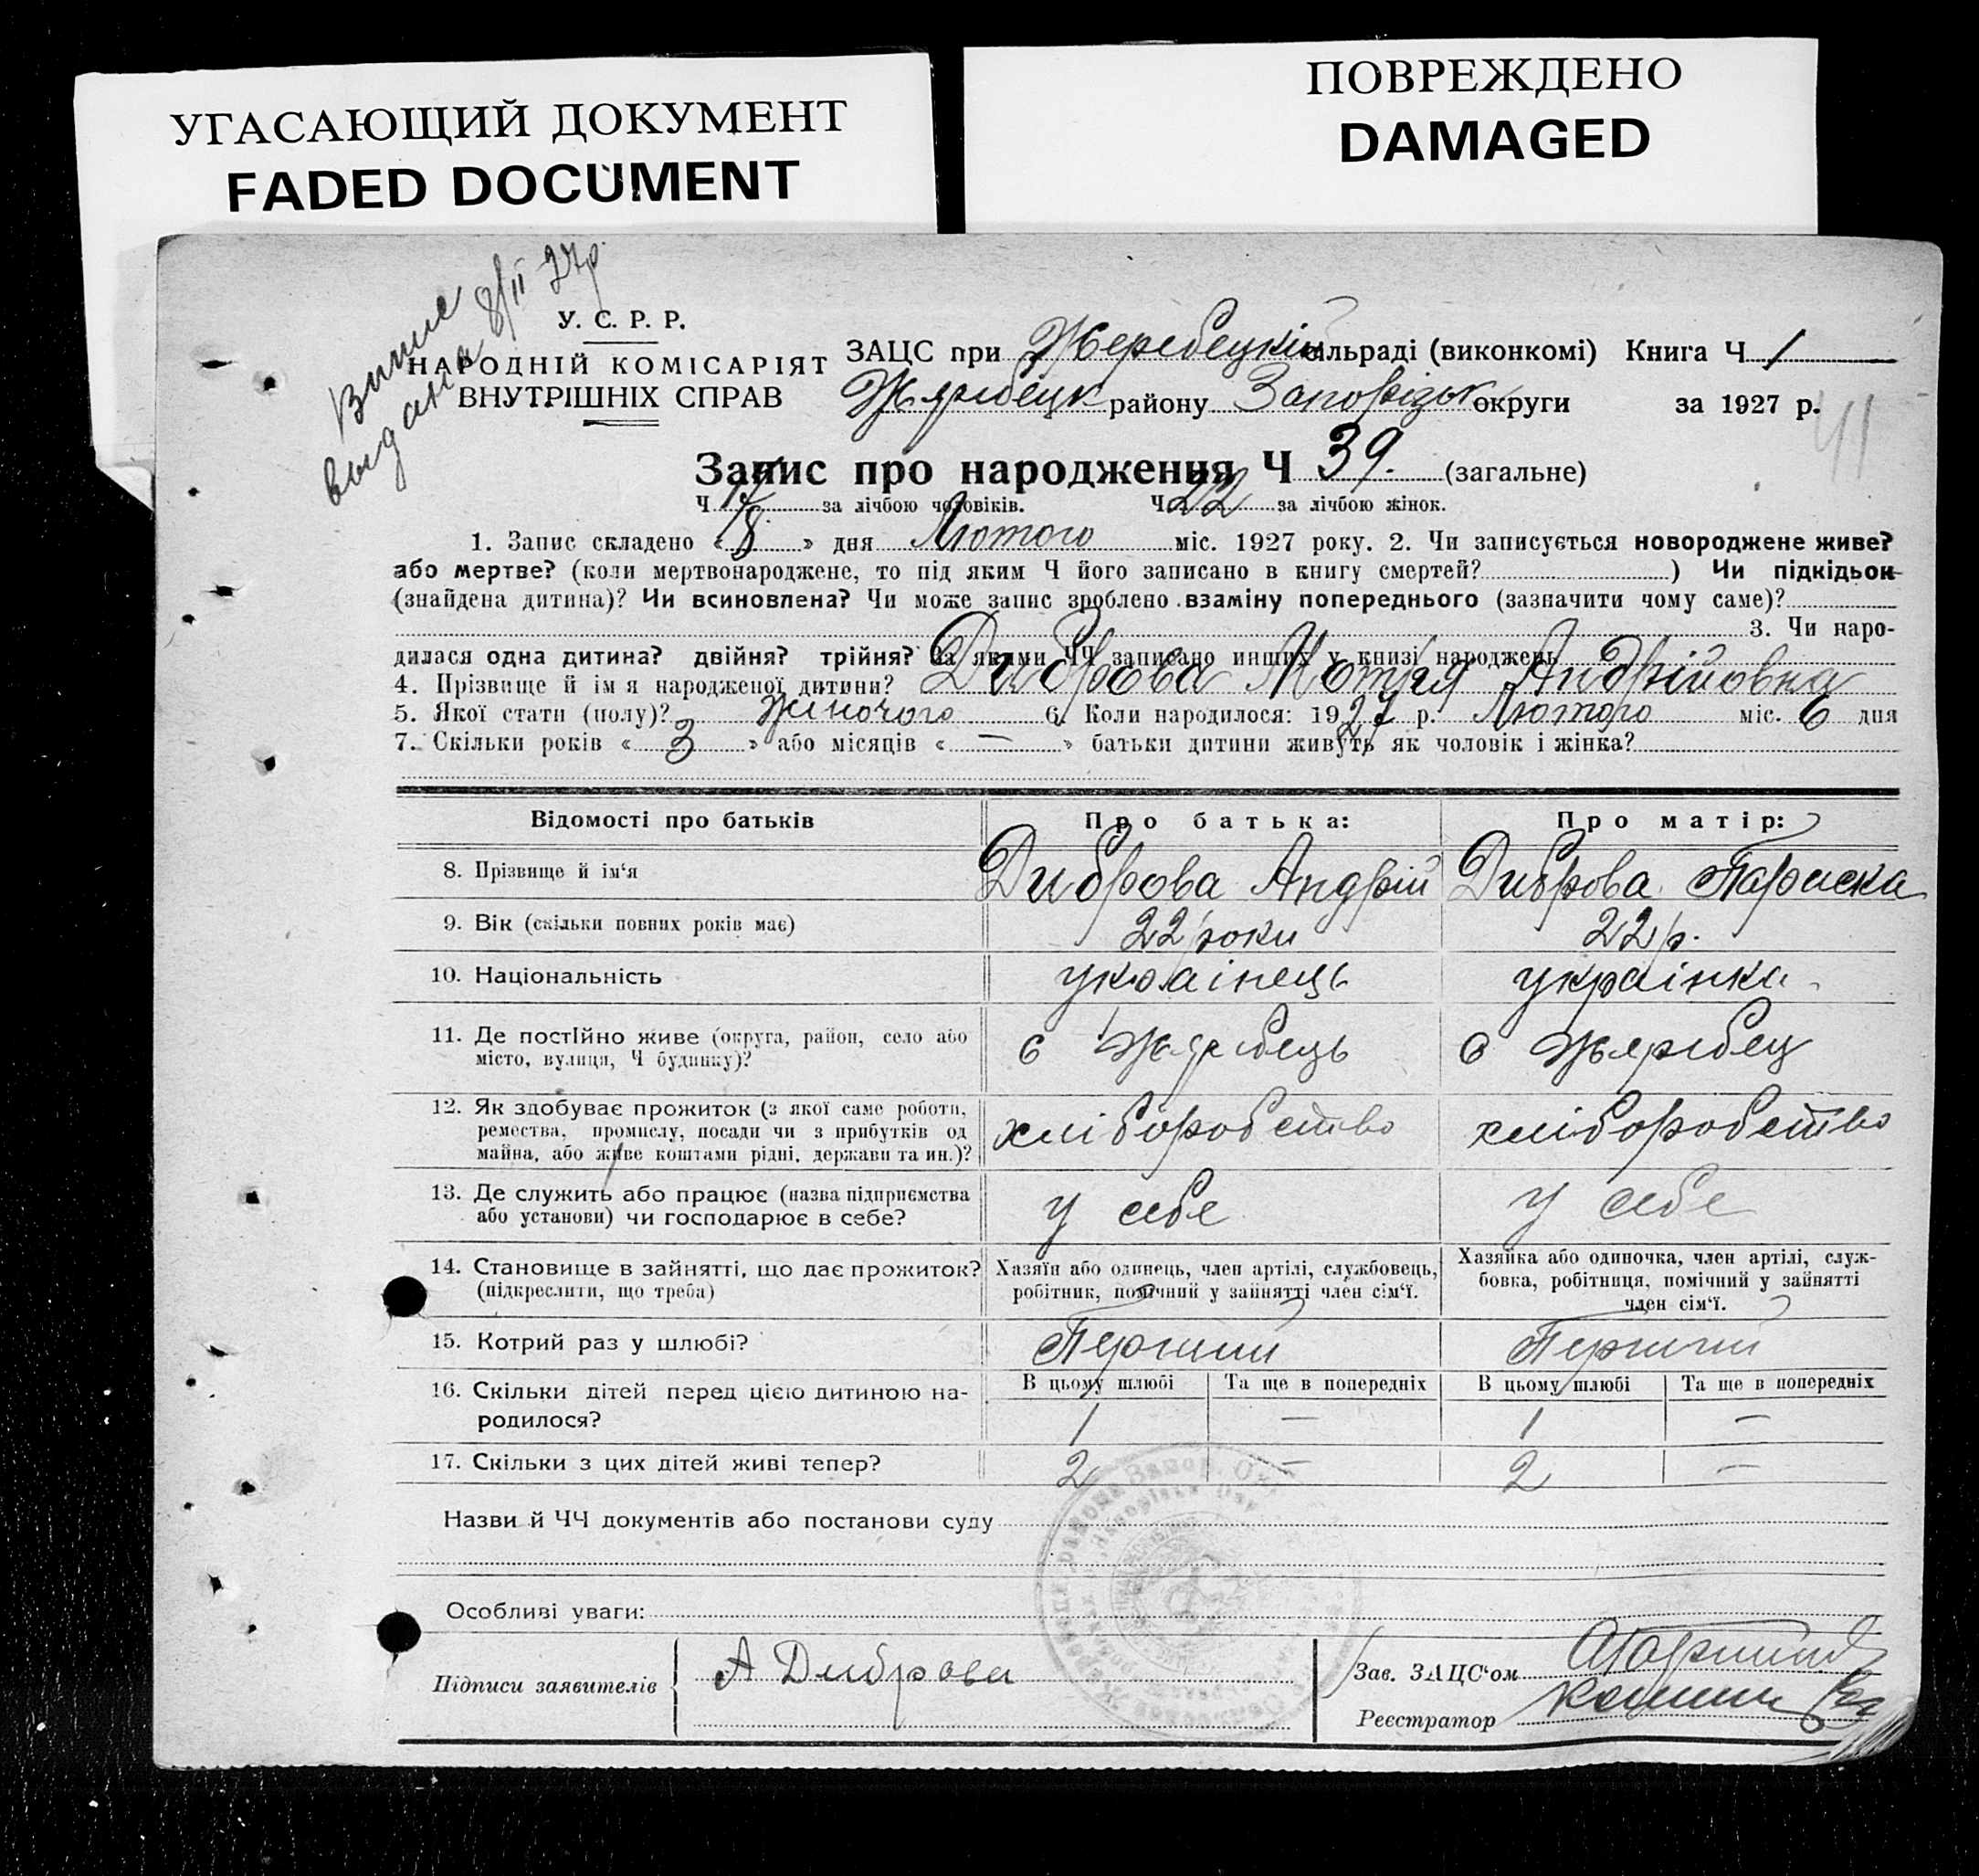 УГАСАЮЩИЙ ДОКУМЕНТ
FADED DOCUMENT
ПОВРЕЖДЕНО
DAMAGED
Випис
выдана 8/II 27р
У. С. Р. Р.
НАРОДНІЙ КОМІСАРІЯТ
ВНУТРІШНІХ СПРАВ
ЗАЦС при Жеребецкій сільраді (виконкомі) Книга Ч 1
Жеребецк району Запорізьк округи за 1927 р.
41
Запис про народження Ч 39. (загальне)
Ч 17 за лічбою чоловіків. Ч 22 за лічбою жінок.
1. Запис складено « 8 » дня Лютого міс. 1927 року. 2. Чи записується новороджене живе?
або мертве? (коли мертвонароджене, то під яким Ч його записано в книгу смертей? ) Чи підкідьок
(знайдена дитина)? Чи всиновлена? Чи може запис зроблено взаміну попереднього (зазначити чому саме)?
3. Чи наро-
дилася одна дитина? двійня? трійня? За якими ЧЧ записано инших у книзі народжень
4. Прізвище й ім я народженої дитини? Диброва Мотря Андрійовна
5. Якої стати (полу)? Жіночого 6. Коли народилося: 1927 р. Лютого міс. 6 дня
7. Скільки років « 3 » або місяців « — » батьки дитини живуть як чоловік і жінка?
Відомості про батьків Про батька: Про матір:
8. Прізвище й ім'я Диброва Андрій Диброва Параска
9. Вік (скільки повних років має) 22 роки 22 р.
10. Національність українець українка
11. Де постійно живе (округа, район, село або
місто, вулиця, Ч будинку)? с Жеребець с Жеребец
12. Як здобуває прожиток (з якої саме роботи,
ремества, промислу, посади чи з прибутків од
майна, або живе коштами рідні, держави та ин.)? хліборобство хліборобство
13. Де служить або працює (назва підприємства
або установи) чи господарює в себе? у себе у себе
14. Становище в зайнятті, що дає прожиток?
(підкреслити, що треба)
Хазяїн або одинець, член артілі, службовець,
робітник, помічний у зайнятті член сім'ї.
Хазяйка або одиночка, член артілі, служ-
бовка, робітниця, помічний у зайнятті
член сім'ї.
15. Котрий раз у шлюбі? Перший Перший
16. Скільки дітей перед цією дитиною на-
родилося?
В цьому шлюбі Та ще в попередніх В цьому шлюбі Та ще в попередніх
1 — 1 —
17. Скільки з цих дітей живі тепер? 2 — 2 —
Назви й ЧЧ документів або постанови суду
Особливі уваги:
Підписи заявителів А Диброва
Зав. ЗАЦС'ом
Реєстратор